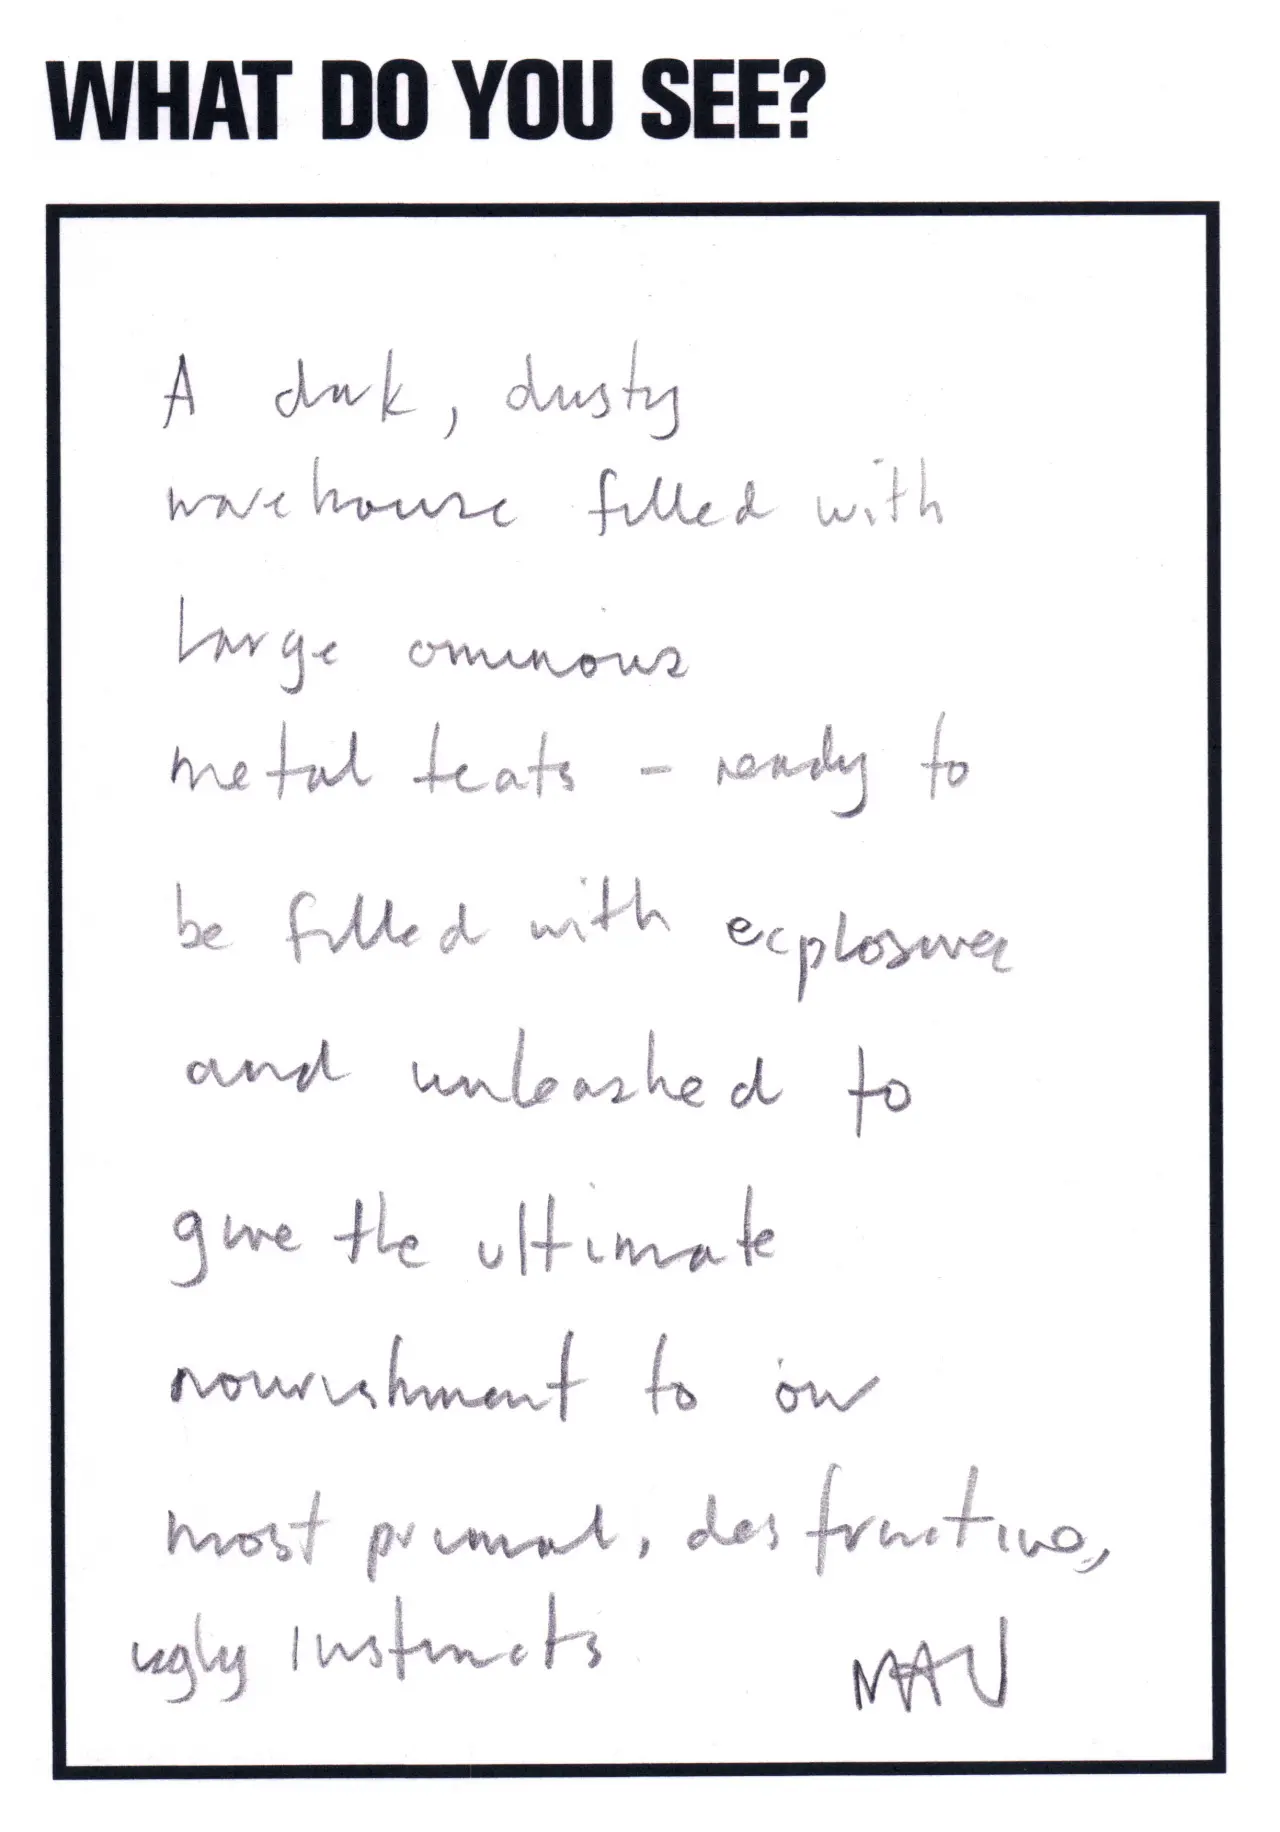 WHAT DO YOU SEE?
A dark, dusty
warehouse filled with
large ominous
metal teats - ready to
be filled with explosives
and unleashed to
give the ultimate
nourishment to our
most primal, destructive,
ugly instincts